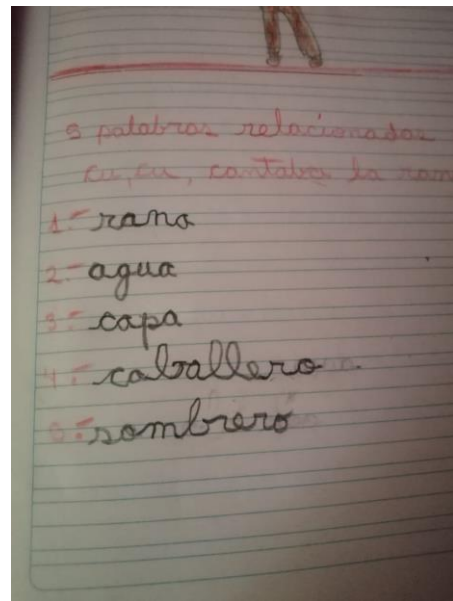 5 palabras relacionadas
cu, cu, cantaba la ran
1.- rana
2.- agua
3.- capa
4.- caballero.
5.- sombrero